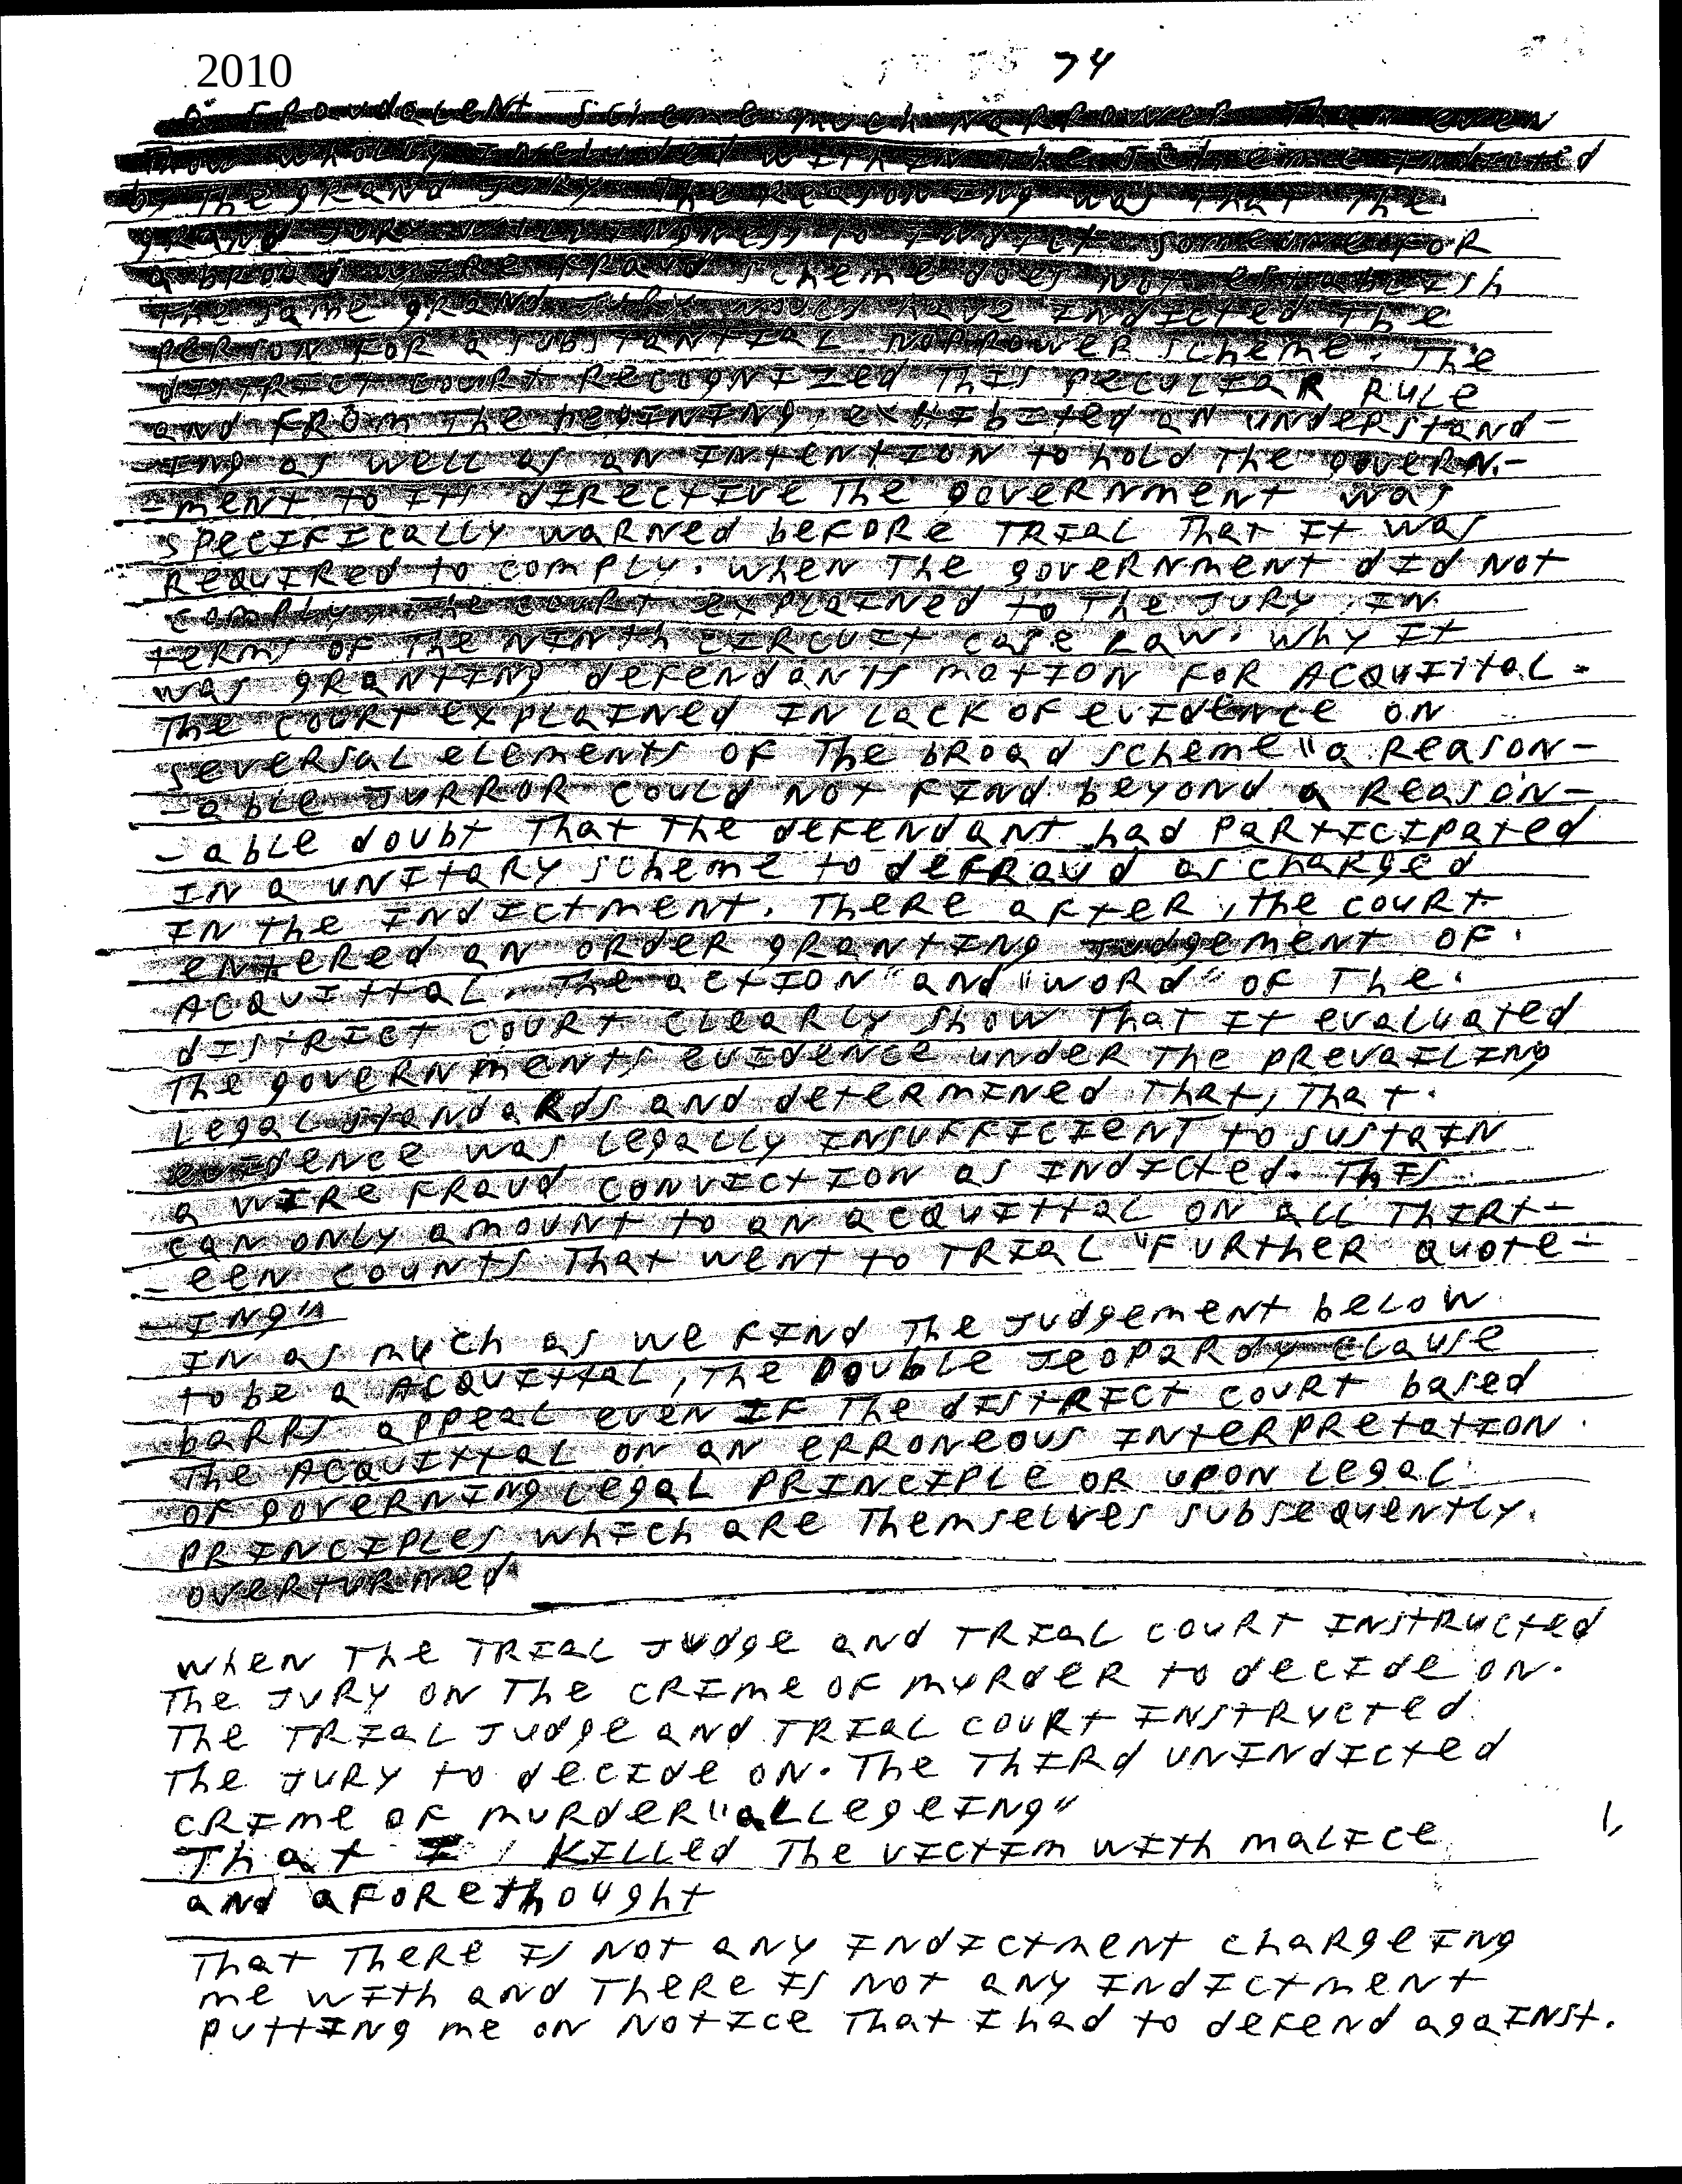 2010
74
a fraudulent scheme much narrower than even
though wholly included within the scheme indicted
by the grand jury. The reasoning was that the
grand jury willingness to indict someone for
a broad wire fraud scheme does not establish
the same grand jury would have indicted the
person for a substantial narrower scheme. The
district court recognized this peculiar rule
and from the begining, exhibited an understand-
-ing as well as an intention to hold the govern-
-ment to its directive the government was
specifically warned before trial that it was
required to comply. when the government did not
comply, the court explained to the jury, in
terms of the ninth circuit case law. why it
was granting defendants motion for acquittal.
The court explained in lack of evidence on
seversal elements of the broad scheme "a reason-
-able jurror could not find beyond a reason-
-able doubt that the defendant had participated
in a unitary scheme to defraud as charged
in the indictment. There after, the court
entered an order granting judgement of
acquittal. The action" and "word" of the
district court clearly show that it evaluated
the governments evidence under the prevailing
legal standards and determined that, that
evidence was legally insufficient to sustain
a wire fraud conviction as indicted. This
can only amount to an acquittal on all thirt-
-een counts that went to trial "further quote-
-ing"
in as much as we find the judgement below
to be a acquittal, the double jeopardy clause
barrs appeal even if the district court based
the acquittal on an erroneous interpretation
of governing legal principle or upon legal
principles which are themselves subsequently.
overturned
when the trial judge and trial court instructed
the jury on the crime of murder to decide on.
The trial judge and trial court instructed
the jury to decide on. The third unindicted
crime of murder "allegeing"
That I killed the victim with malice
and aforethought
That there is not any indictment chargeing
me with and there is not any indictment
putting me on notice that I had to defend against.